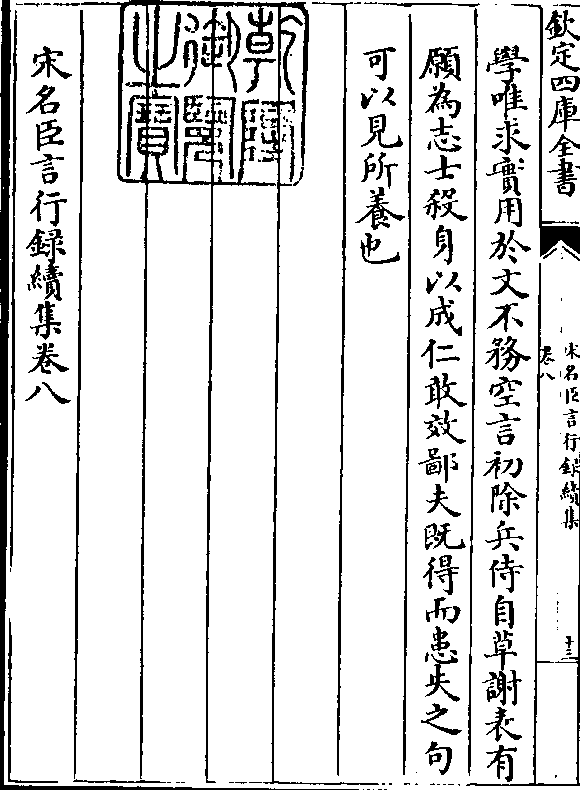 欽定四庫全書
宋名臣言行録續集
卷八
十三
學唯求實用於文不務空言初除兵侍自草謝表有
願為志士殺身以成仁敢效鄙夫既得而患失之句
可以見所養也
乾隆
御覽
之寶
宋名臣言行録續集卷八